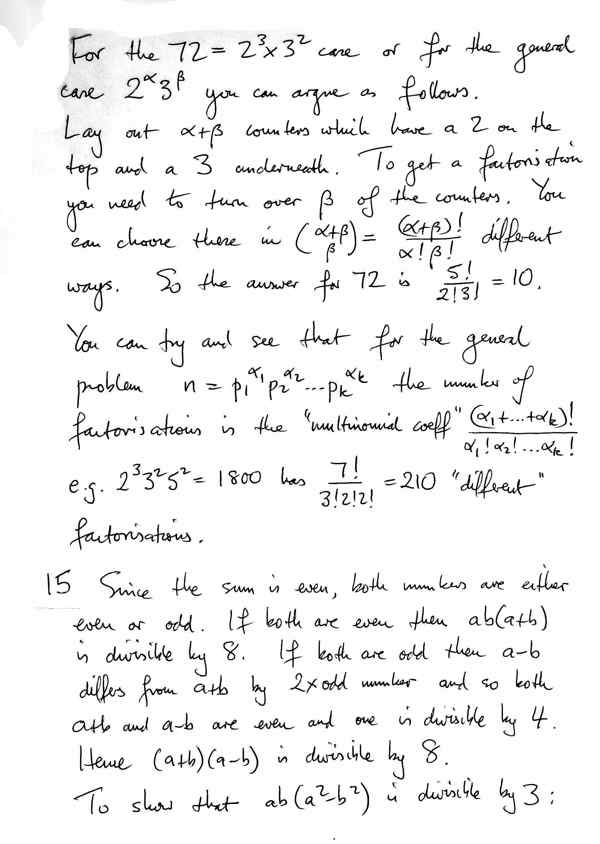 For the 72 = 2³x3² case or for the general
case 2^α3^β you can argue as follows.
Lay out α+β counters which have a 2 on the
top and a 3 underneath. To get a factorisation
you need to turn over β of the counters. You
can choose these in (α+β β) = (α+β)!/α!β! different
ways. So the answer for 72 is 5!/2!3! = 10.
You can try and see that for the general
problem n = p₁^α₁ p₂^α₂ ... pₖ^αₖ the number of
factorisations is the "multinomial coeff" (α₁+...+αₖ)!/α₁!α₂!...αₖ!
e.g. 2³3²5² = 1800 has 7!/3!2!2! = 210 "different"
factorisations.
15 Since the sum is even, both numbers are either
even or odd. If both are even then ab(a+b)
is divisible by 8. If both are odd then a-b
differs from a+b by 2x odd number and so both
a+b and a-b are even and one is divisible by 4.
Hence (a+b)(a-b) is divisible by 8.
To show that ab(a²-b²) is divisible by 3: